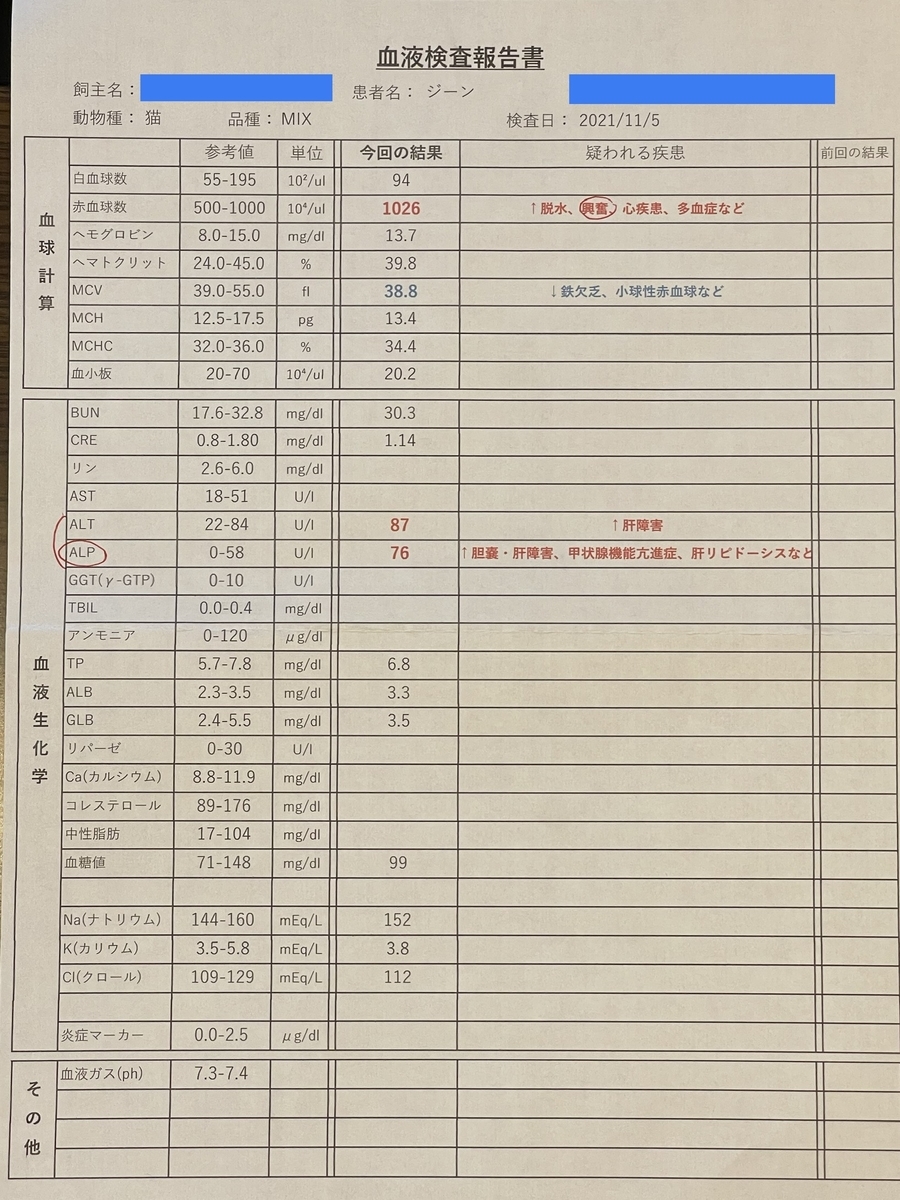 血液検査報告書
飼主名： 患者名： ジーン
動物種： 猫 品種： MIX 検査日： 2021/11/5
参考値 単位 今回の結果 疑われる疾患 前回の結果
血球計算
白血球数 55-195 10²/ul 94
赤血球数 500-1000 10⁴/ul 1026 ↑脱水、興奮、心疾患、多血症など
ヘモグロビン 8.0-15.0 mg/dl 13.7
ヘマトクリット 24.0-45.0 % 39.8
MCV 39.0-55.0 fl 38.8 ↓鉄欠乏、小球性赤血球など
MCH 12.5-17.5 pg 13.4
MCHC 32.0-36.0 % 34.4
血小板 20-70 10⁴/ul 20.2
血液生化学
BUN 17.6-32.8 mg/dl 30.3
CRE 0.8-1.80 mg/dl 1.14
リン 2.6-6.0 mg/dl
AST 18-51 U/l
ALT 22-84 U/l 87 ↑肝障害
ALP 0-58 U/l 76 ↑胆嚢・肝障害、甲状腺機能亢進症、肝リピドーシスなど
GGT(γ-GTP) 0-10 U/l
TBIL 0.0-0.4 mg/dl
アンモニア 0-120 μg/dl
TP 5.7-7.8 mg/dl 6.8
ALB 2.3-3.5 mg/dl 3.3
GLB 2.4-5.5 mg/dl 3.5
リパーゼ 0-30 U/l
Ca(カルシウム) 8.8-11.9 mg/dl
コレステロール 89-176 mg/dl
中性脂肪 17-104 mg/dl
血糖値 71-148 mg/dl 99
Na(ナトリウム) 144-160 mEq/L 152
K(カリウム) 3.5-5.8 mEq/L 3.8
Cl(クロール) 109-129 mEq/L 112
炎症マーカー 0.0-2.5 μg/dl
その他
血液ガス(ph) 7.3-7.4